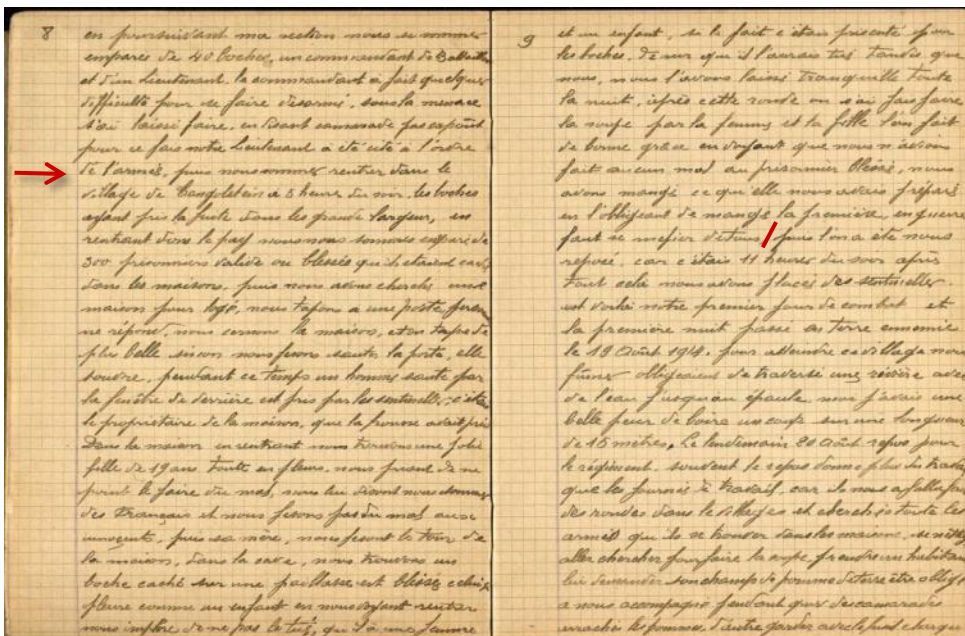 8
en poursuivant ma section nous se sommes
emparés de 40 boches, un commandant de Bataillon
et d'un Lieutenant, le commandant à fait quelques
difficulté pour se faire désarmé, sous la menace
s'ai laissé faire, en disant camarade pas capout
pour ce fais notre Lieutenant a été cité à l'ordre
de l'armée, puis nous sommes rentrer dans le
village de à 5 heure du soir, les boches
ayant pris la fuite dans les grande largeur, en
rentrant dans le pays nous nous sommes emparé de
300 prisonniers valide ou blessés qui étaient caché
dans les maisons, puis nous avons cherché une
maison pour logé, nous tapons a une porte, 
ne répond, nous cernons la maison, et on tapes de
plus belle sinon nous ferons sauté la porte, elle
s'ouvre, pendant ce temps un homme saute par
la fenêtre de derrière est pris par les sentinelle, c'était
le propriétaire de la maison, que la frousse avait pris
Dans la maison en rentrant nous trouvons une jolie
fille de 19 ans toute en pleurs, nous priant de ne
point le faire du mal, nous lui disons nous sommes
des Français et nous fesons pas du mal aux
innocents, puis sa mère, nous fesont le tour de
la maison, dans la cave, nous trouvons un
boche caché sur une paillasse est blessé celui ci
pleure comme un enfant en nous voyant rentrer
nous implore de ne pas le tué, qu'il a une femme
9
et un enfant, si le fait c'étais présenté pour
les boches, de sur qu'il l'aurais tué tandis que
nous, nous l'avons laissé tranquille toute
la nuit, après cette ronde on s'ai fais faire
la soupe par la femme et la fille l'on fait
de bonne grâce en voyant que nous n'avions
fait aucun mal au prisonnier blessé, nous
avons mangé ce qu'elle nous avais préparé
en l'obligeant de mangé la première, en guerre
faut se méfier de tous / puis l'on a été nous
reposé, car c'étais 11 heures du soir après
tout celà nous avons placés des sentinelles.
est voilà notre premier jour de combat et
la première nuit passé en terre ennemie
le 19 Août 1914. pour atteindre ce village nous
fûmes obligeaient de traversé une rivière avec
de l'eau jusqu'au épaule, moi j'avais une
belle peur de boire un coup sur une longueur
de 15 mètres. Le lendemain 20 août repos pour
le régiment. souvent le repos donne plus du travail
que les journées de travail, car il nous a fallu faire
des rondes dans le villages et cherchés toute les
armes qui ils se trouver dans les maisons,
aller chercher pour faire la soupe, prendre un habitant
lui demander son champ de pomme de terre être obligé
a nous accompagné pendant que des camarades
arrachés les pommes, d'autre gardes avec le fusil chargé